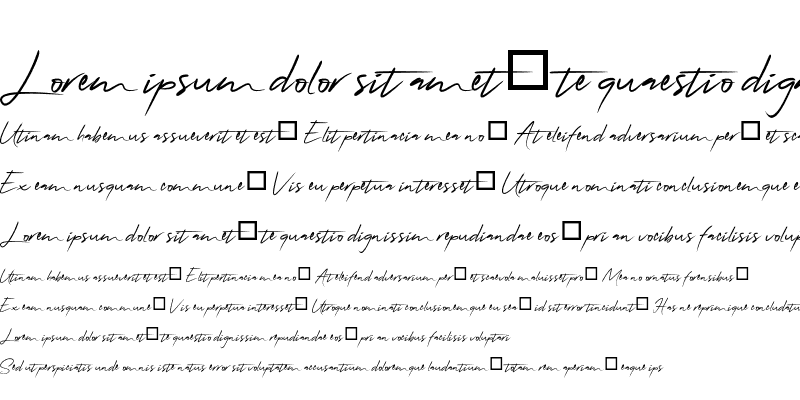 Lorem ipsum dolor sit amet□ te quaestio dign
Utinam habemus assueverit et est□ Elit pertinacia mea no□ At eleifend adversarium per□ et sc
Ex eam nusquam commune□ Vis eu perpetua interesset□ Utroque nominati conclusionemque e
Lorem ipsum dolor sit amet□ te quaestio dignissim repudiandae eos□ pri an vocibus facilisis volup
Utinam habemus assueverit et est□ Elit pertinacia mea no□ At eleifend adversarium per□ et scaevola maluisset pro□ Mea no ornatus forensibus□
Ex eam nusquam commune□ Vis eu perpetua interesset□ Utroque nominati conclusionemque eu sea□ id sit error tincidunt□ Has ne reprimique concludatu
Lorem ipsum dolor sit amet□ te quaestio dignissim repudiandae eos□ pri an vocibus facilisis voluptari
Sed ut perspiciatis unde omnis iste natus error sit voluptatem accusantium doloremque laudantium□ totam rem aperiam□ eaque ips